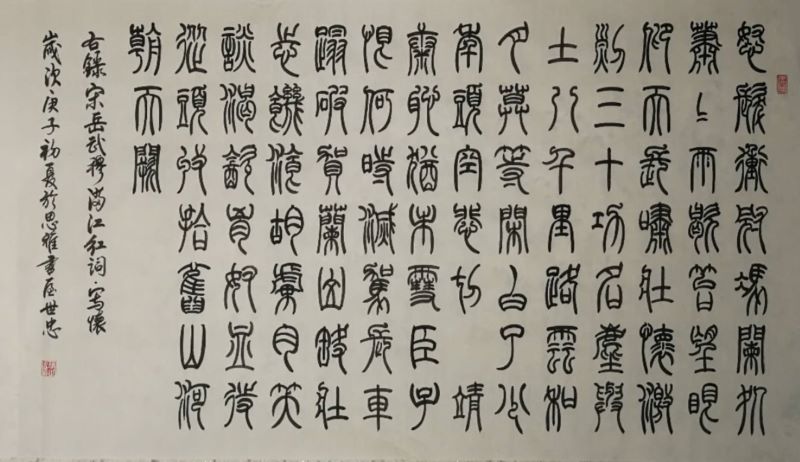 怒髮衝冠憑闌処
蕭〻雨歇抬望眼
仰天長嘯壯懷激
烈三十功名塵與
土八千里路雲和
月莫等閑白了少
年頭空悲切 靖
康恥猶未雪臣子
恨何時滅駕長車
踏破賀蘭山缺壯
志饑飡胡虜肉笑
談渴飲匈奴血待
從頭收拾舊山河
朝天闕
右錄宋岳武穆滿江紅詞·寫懷
歲次庚子初夏於思雅書屋世忠